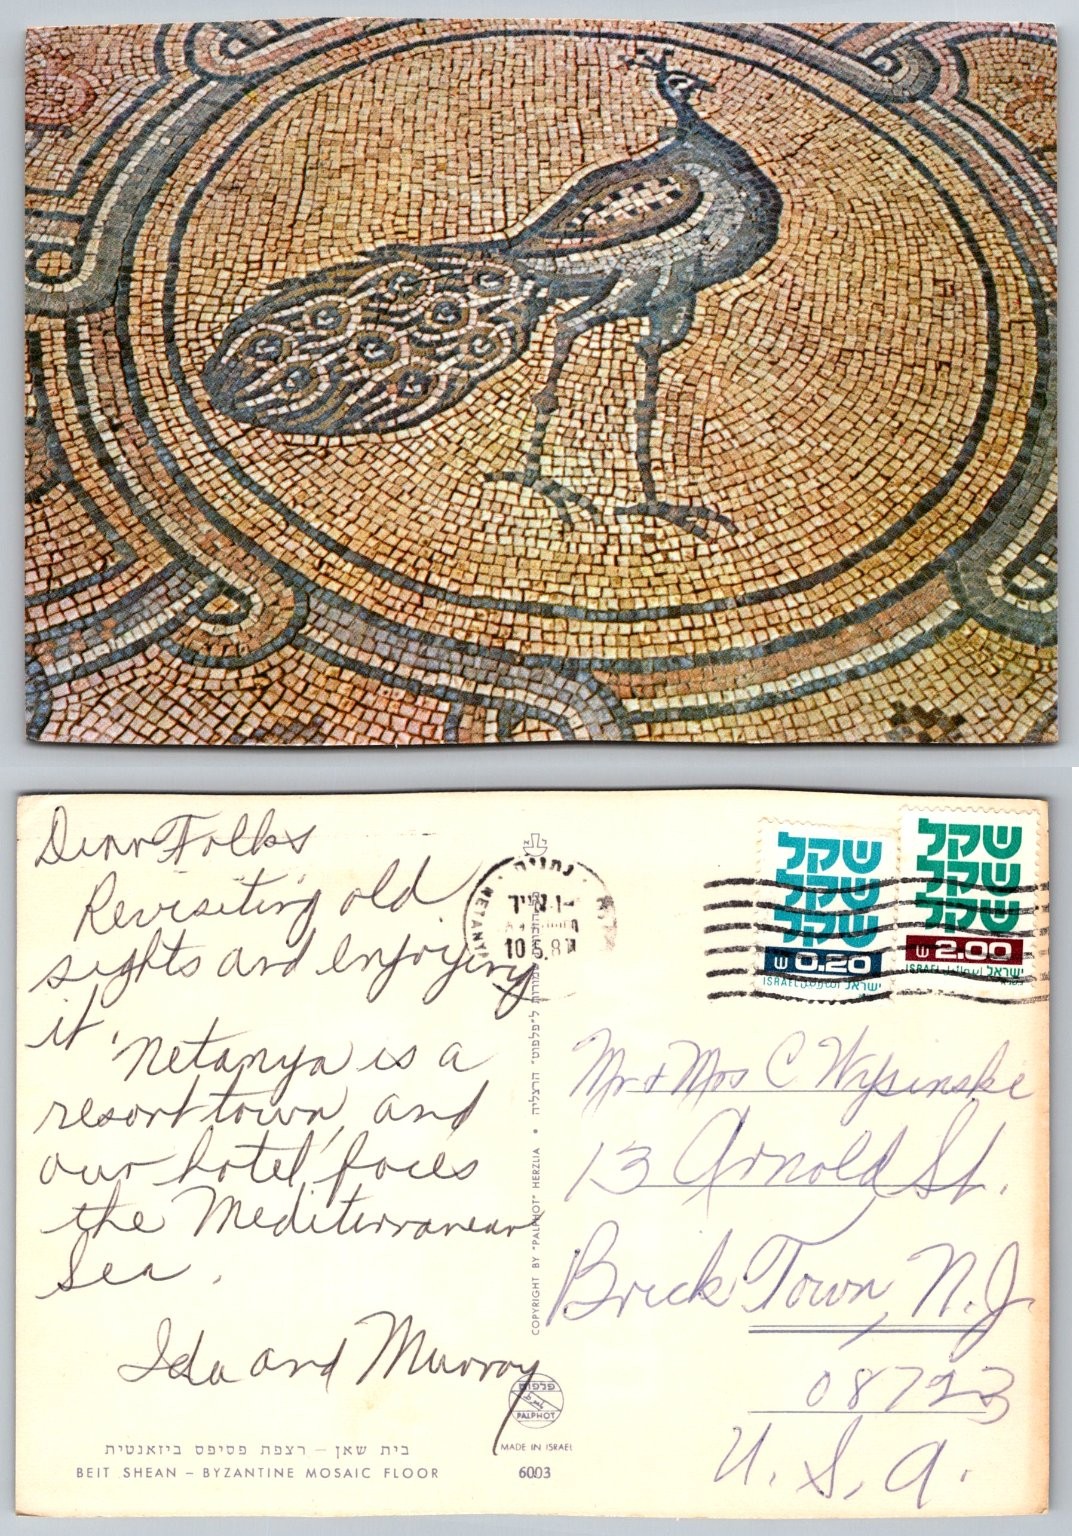 Dear Folks
Revisiting old
sights and enjoying
it. Netanya is a
resort town, and
our hotel faces
the Mediterranean
Sea.
Ida and Murray
בית שאן – רצפת פסיפס ביזאנטית
BEIT SHEAN – BYZANTINE MOSAIC FLOOR
נתניה
NETANYA
COPYRIGHT BY "PALPHOT" HERZLIA • ל"פלפוט" הרצליה
פלפוט
PALPHOT
MADE IN ISRAEL
6003
שקל
שקל
שקל
0.20
ISRAEL اسرائيل ישראל
שקל
שקל
שקל
2.00
ISRAEL اسرائيل ישראל
Mr & Mrs C Wysinski
13 Arnold St.
Brick Town, N.J.
08723
U.S.A.